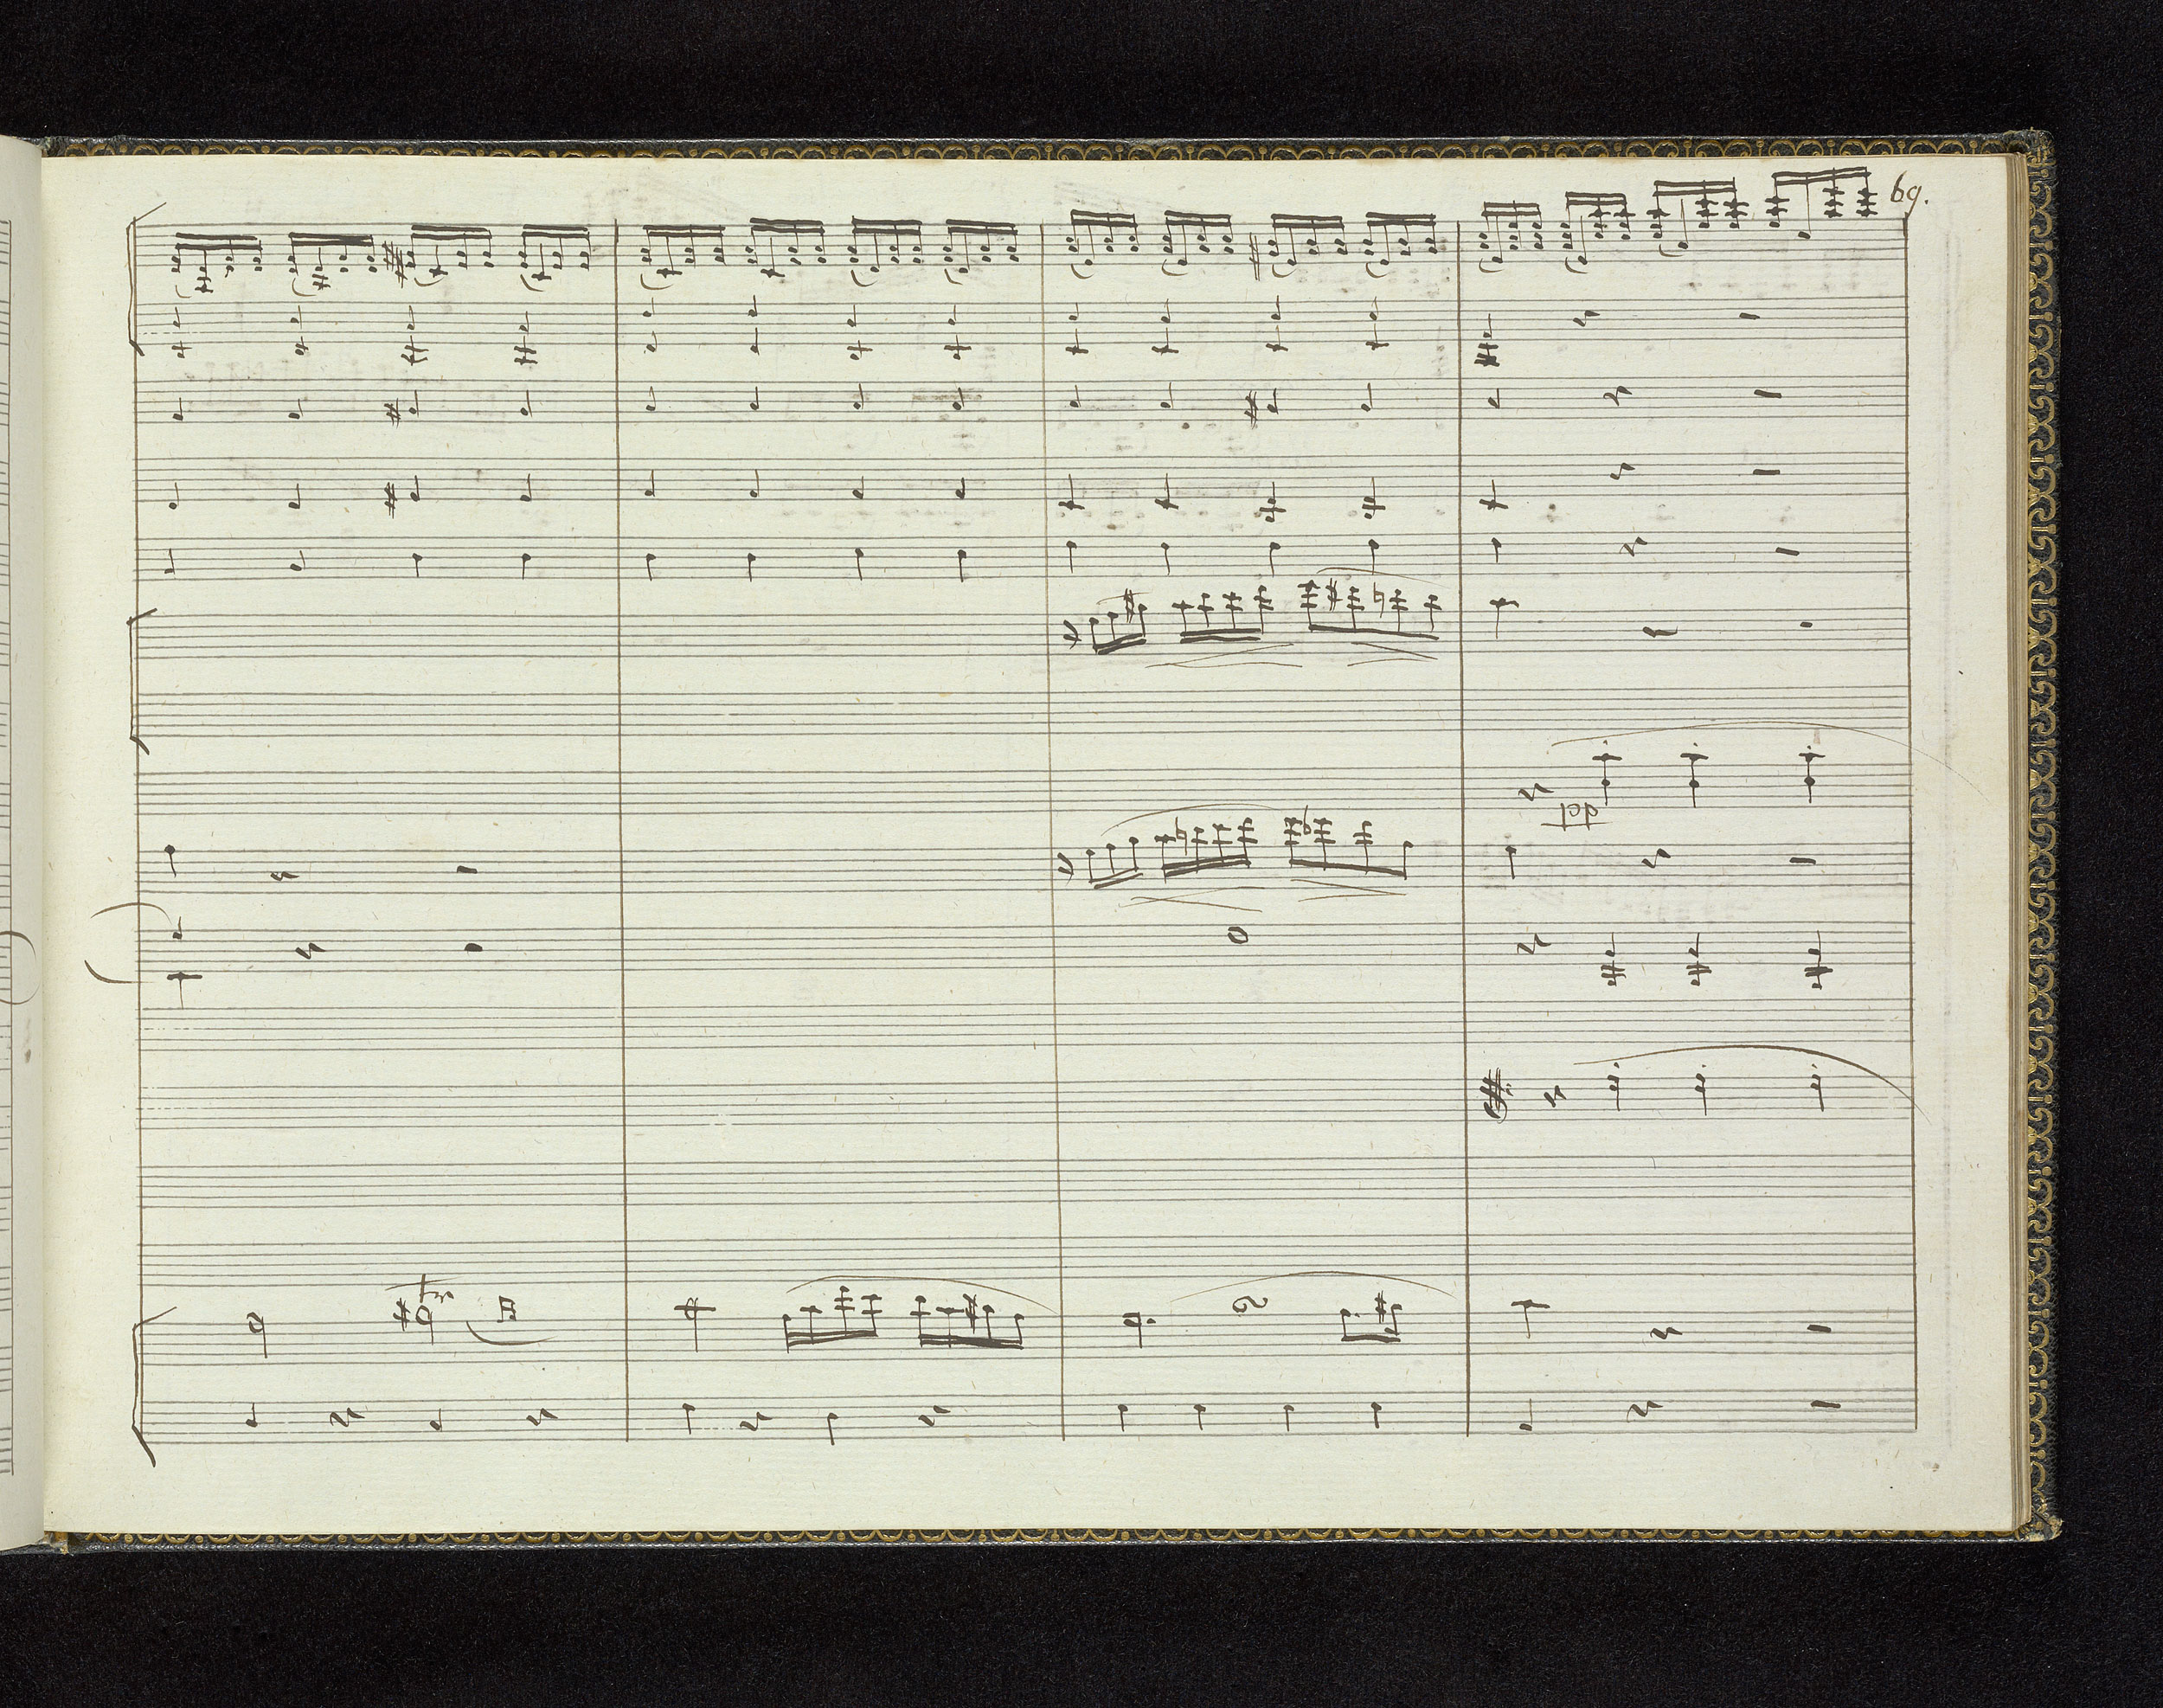 69.
tr
pp